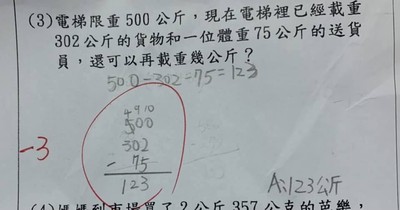 (3)電梯限重500公斤，現在電梯裡已經載重
302公斤的貨物和一位體重75公斤的送貨
員，還可以再載重幾公斤？
500-302=75=123
4910
500
302
- 75
123
-3
A:123公斤
(4)媽媽到市場買了2公斤357公克的芭樂，